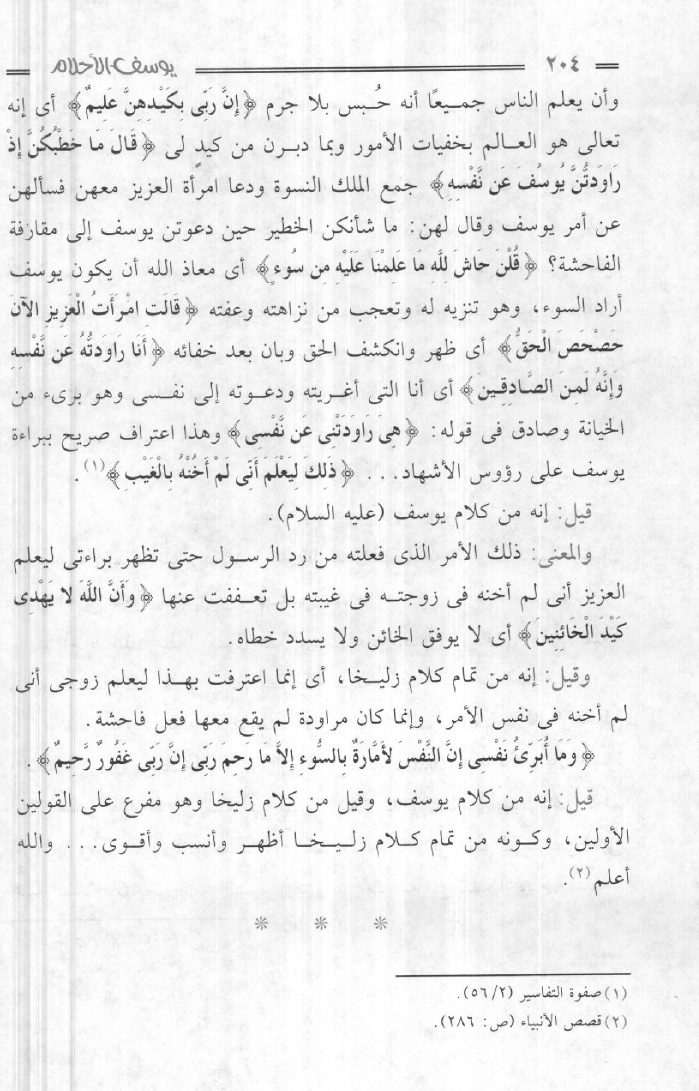 ٢٠٤ يوسف الأحلام
وأن يعلم الناس جميعًا أنه حُبس بلا جرم ﴿إِنَّ رَبِّى بِكَيْدِهِنَّ عَلِيمٌ﴾ أى إنه
تعالى هو العالم بخفيات الأمور وبما دبرن من كيدٍ لى ﴿قَالَ مَا خَطْبُكُنَّ إِذْ
رَاوَدتُّنَّ يُوسُفَ عَن نَّفْسِهِ﴾ جمع الملك النسوة ودعا امرأة العزيز معهن فسألهن
عن أمر يوسف وقال لهن: ما شأنكن الخطير حين دعوتن يوسف إلى مقارفة
الفاحشة؟ ﴿قُلْنَ حَاشَ لِلَّهِ مَا عَلِمْنَا عَلَيْهِ مِن سُوءٍ﴾ أى معاذ الله أن يكون يوسف
أراد السوء، وهو تنزيه له وتعجب من نزاهته وعفته ﴿قَالَتِ امْرَأَتُ الْعَزِيزِ الآنَ
حَصْحَصَ الْحَقُّ﴾ أى ظهر وانكشف الحق وبان بعد خفائه ﴿أَنَا رَاوَدتُّهُ عَن نَّفْسِهِ
وَإِنَّهُ لَمِنَ الصَّادِقِينَ﴾ أى أنا التى أغريته ودعوته إلى نفسى وهو برىء من
الخيانة وصادق فى قوله: ﴿هِىَ رَاوَدَتْنِى عَن نَّفْسِى﴾ وهذا اعتراف صريح ببراءة
يوسف على رؤوس الأشهاد... ﴿ذَلِكَ لِيَعْلَمَ أَنِّى لَمْ أَخُنْهُ بِالْغَيْبِ﴾(١).
قيل: إنه من كلام يوسف (عليه السلام).
والمعنى: ذلك الأمر الذى فعلته من رد الرسول حتى تظهر براءتى ليعلم
العزيز أنى لم أخنه فى زوجته فى غيبته بل تعففت عنها ﴿وَأَنَّ اللَّهَ لا يَهْدِى
كَيْدَ الْخَائِنِينَ﴾ أى لا يوفق الخائن ولا يسدد خطاه.
وقيل: إنه من تمام كلام زليخا، أى إنما اعترفت بهذا ليعلم زوجى أنى
لم أخنه فى نفس الأمر، وإنما كان مراودة لم يقع معها فعل فاحشة.
﴿وَمَا أُبَرِّئُ نَفْسِى إِنَّ النَّفْسَ لأَمَّارَةٌ بِالسُّوءِ إِلاَّ مَا رَحِمَ رَبِّى إِنَّ رَبِّى غَفُورٌ رَّحِيمٌ﴾.
قيل: إنه من كلام يوسف، وقيل من كلام زليخا وهو مفرع على القولين
الأولين، وكونه من تمام كلام زليخا أظهر وأنسب وأقوى... والله
أعلم(٢).
* * *
(١) صفوة التفاسير (٥٦/٢).
(٢) قصص الأنبياء (ص: ٢٨٦).